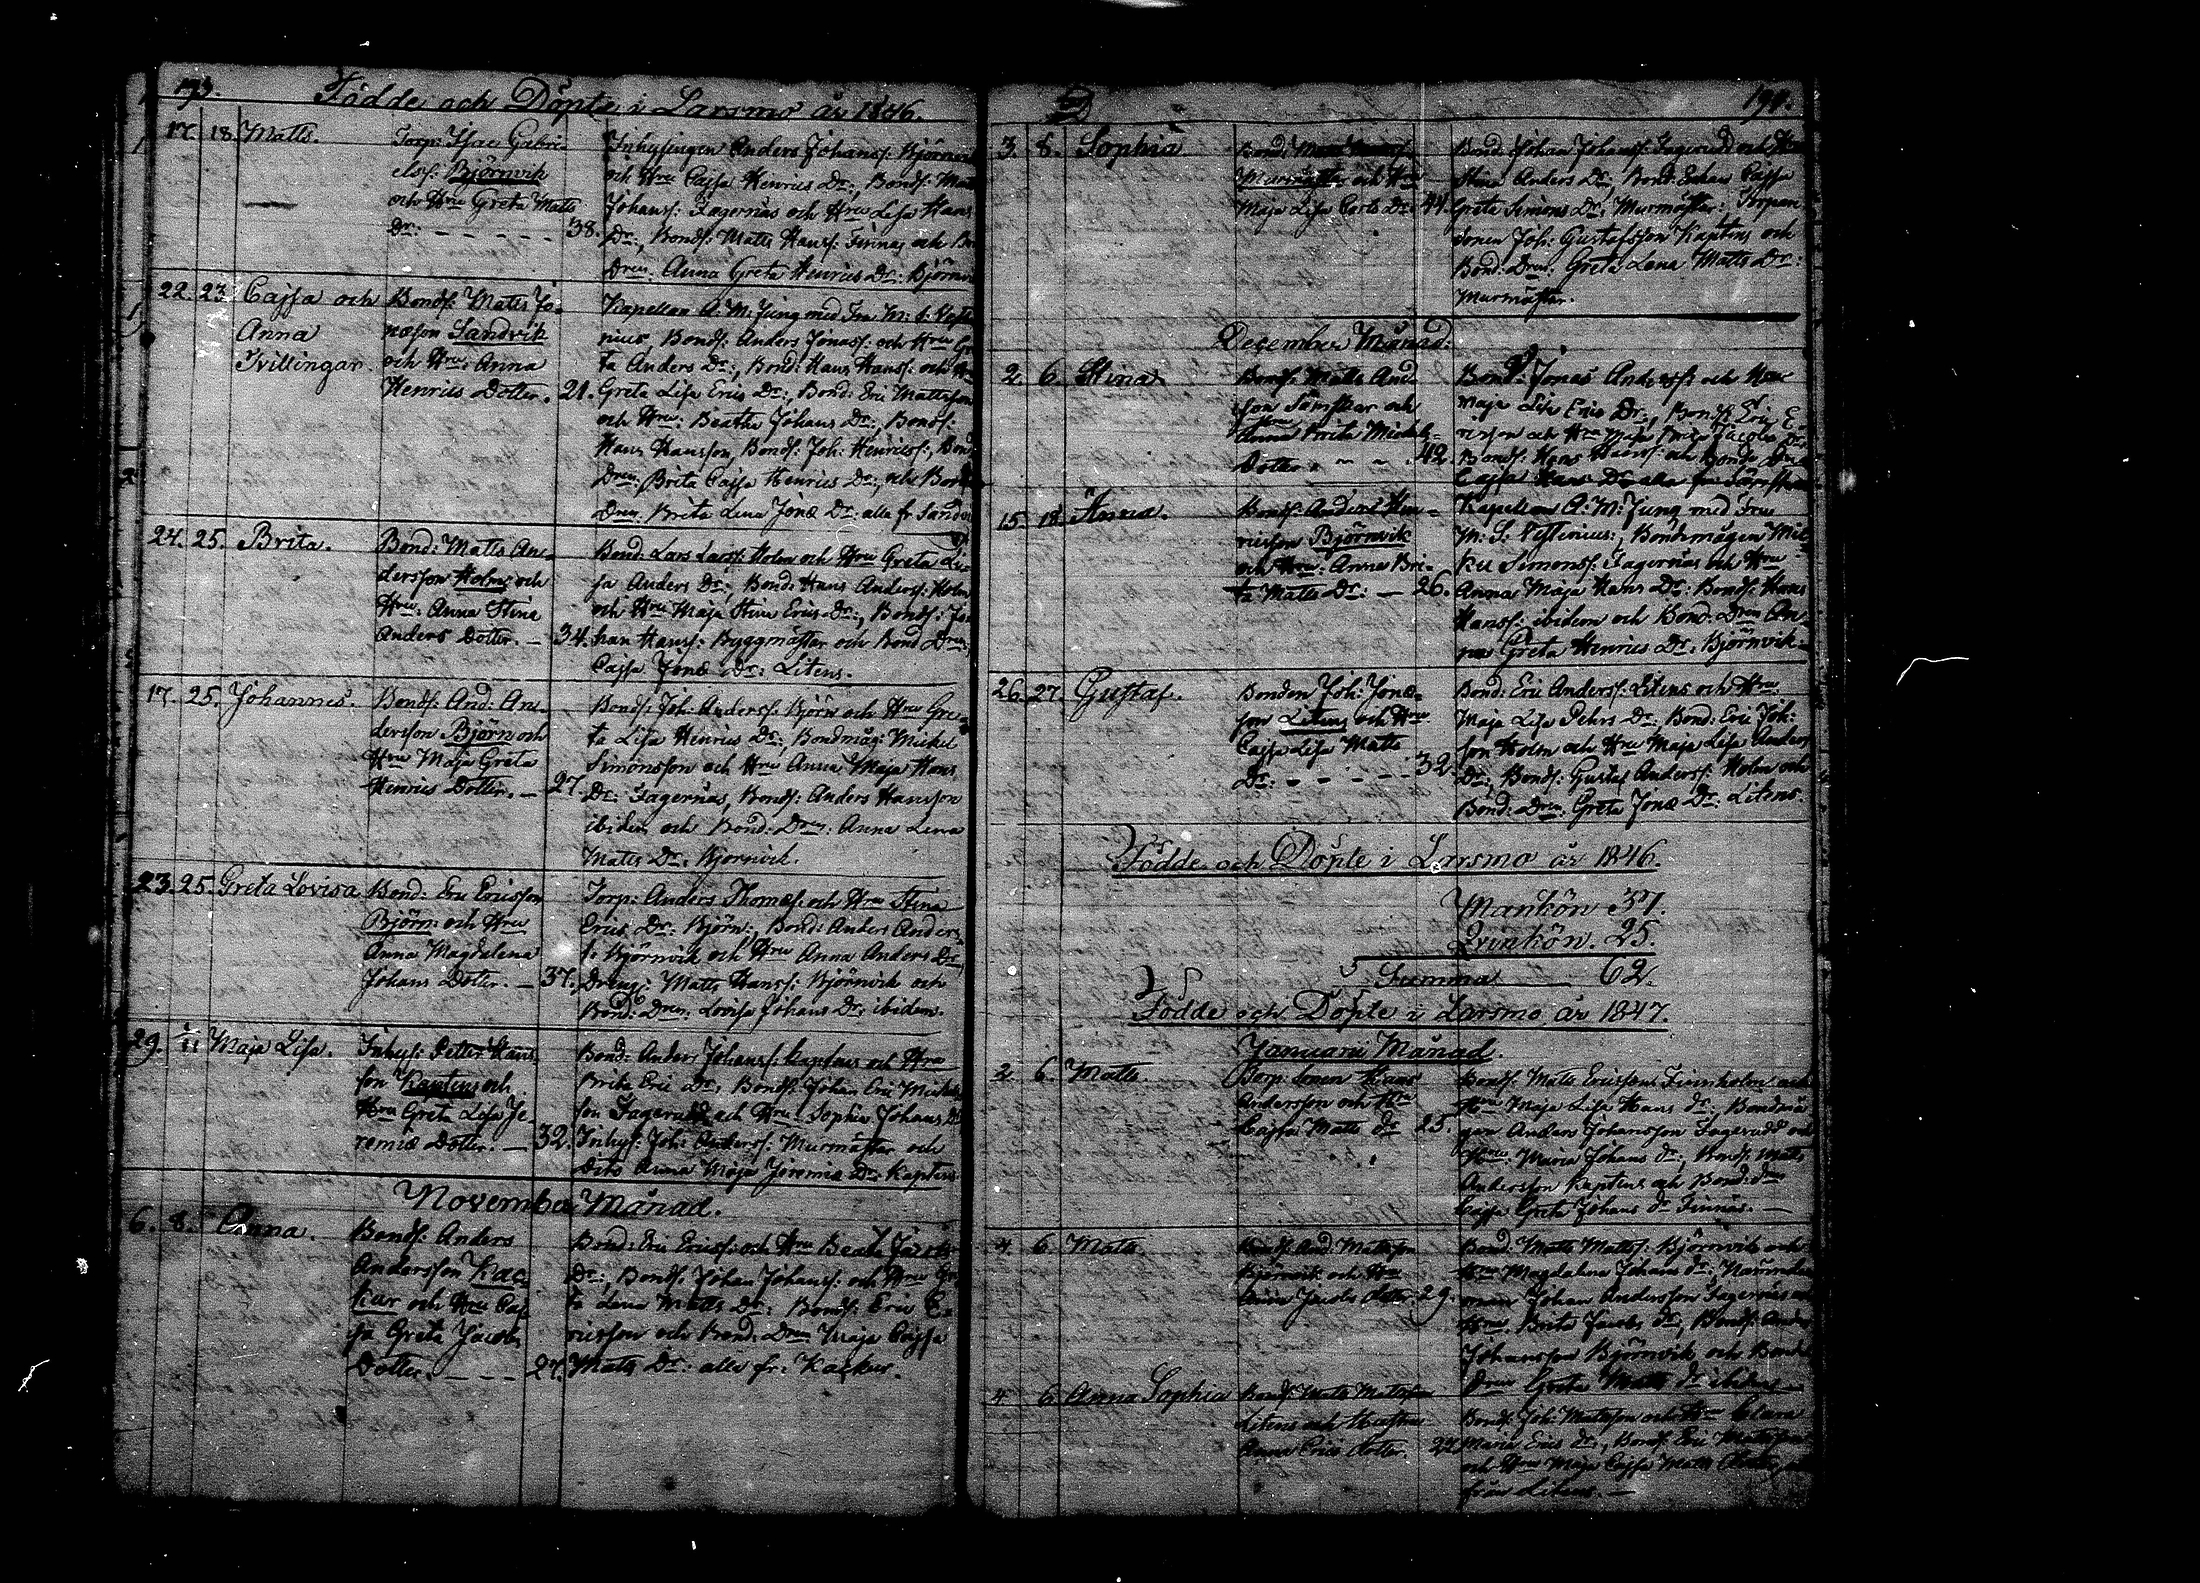 193.
Födde och Döpte i Larsmo år 1846.
17. 18. Matts.
Torp: Isac Gabri-
elss: Björnvik
och Hru Greta Matts
Dr: - - - - - 38.
Inhysingen Anders Johanss: Björnvik
och Hru Cajsa Henrics Dr:, Bonds: Matts
Johans: Fagernäs och Hru Lisa Hans
Dr:, Bonds: Matts Hanss: Finnas och
Dren: Anna Greta Henrics Dr: Björnvik
22. 23. Cajsa och
Anna
Tvillingar.
Bonds: Matts Jo-
næson Sandvik
och Hru: Anna
Henrics Dotter. 21.
Kapellan A: M: Jung med Fru M: S:
nius, Bonds: Anders Jonass: och Hru Gre
ta Anders Dr:, Bond: Hans Hanss: och Hru
Greta Lisa Erics Dr:, Bond: Eric Mattsson
och Hru: Beatha Johans Dr:, Bonds:
Hans Hansson, Bonds: Joh: Henricss:, Bond
Dren: Brita Cajsa Henrics Dr:, och Bond
Dren: Brita Lena Jonæ Dr: alla fr Sandvik
24. 25. Brita.
Bond: Matts An-
dersson Holm och
Hru: Anna Stina
Anders Dotter. - 34.
Bond: Lars Larss: Holm och Hru Greta Li-
sa Anders Dr:, Bond: Hans Anderss: Holm
och Hru Maja Stina Erics Dr:, Bonds: Jo
han Hanss: Byggmästar och Bond Dren:
Cajsa Jonæ Dr: Litens.
17. 25. Johannes.
Bonds: And: An-
dersson Björn och
Hru Maja Greta
Henrics Dotter. - 27.
Bonds: Joh: Anderss: Björn och Hru Gre-
ta Lisa Henrics Dr:, Bondmåg: Mickel
Simonsson och Hru Anna Maja Hans
Dr: Fagernäs, Bonds: Anders Hansson
ibidem och Bond: Dren: Anna Lena
Matts Dr: Björnvik.
23. 25. Greta Lovisa
Bond: Eric Ericsson
Björn och Hru
Anna Magdalena
Johans Dotter. - 37.
Torp: Anders Thomæs: och Hru Stina
Erics Dr: Björn:, Bond: Anders Anders
s: Björnvik och Hru Anna Anders Dr:
Dreng: Matts Hanss: Björnvik och
Bond: Dren: Lovisa Johans Dr: ibidem.
29. 1/11 Maja Lisa.
Inhys: Petter Hans
son Kaptens och
Hru Greta Lisa Je
remiæ Dotter. - 32.
Bond: Anders Johanss: Kaptens och Hru
Brita Eric Dr:, Bonds: Johan Eric Mickels
son Fagerudd och Hru Sophia Johans Dr
Inhys: Joh: Anderss: Murmästar och
dito Anna Maja Jeremiæ Dr: Kaptens
November Månad.
6. 8. Anna.
Bonds: Anders
Andersson Kac-
kur och Hru Caj
sa Greta Jacobs
Dotter. - - - 27.
Bond: Eric Ericss: och Hru Beata Jacobs
Dr:, Bonds: Johan Johanss: och Hru Gre
ta Lena Matts Dr:, Bonds: Eric E-
ricsson och Bond: Dren Maja Cajsa
Matts Dr: alla fr: Kackur.
194.
3. 8. Sophia.
Bond:
Murmästar och Hru
Maja Lisa Dr: 44.
Bond: Johan Johanss: Fagerudd och Hru
Stina Anders Dr:, Bond: Enkan Cajsa
Greta Simons Dr: Murmästar:
sonen Joh: Gustafsson Kaptens och
Bond: Dren: Greta Lena Matts Dr:
Murmästar.
December Månad.
2. 6. Stina
Bonds: Matts And-
son och
Anna Brita Mickels-
Dotter. - - - 42.
Bond: Jonas Anderss: och Hru
Maja Lisa Erics Dr:, Bonds Eric E-
ricsson och Hru Maja Jacobs Dr
Bonds: Hans Hanss: och Bond:
Cajsa Hans Dr alla fr:
15. 18. Anna.
Bonds: Anders Hen-
ricsson Björnvik
och Hru: Anna Bri-
ta Matts Dr: - 26.
Kapellan A: M: Jung med Fru
M: S: , Bondemågen Mic-
kel Simonss: Fagernäs och Hru
Anna Maja Hans Dr: Bonds: Hans
Hanss: ibidem och Bond: Dren An-
na Greta Henrics Dr: Björnvik
26. 27. Gustaf.
Bonden Joh: Jonæ-
son Litens och Hru
Cajsa Lisa Matts
Dr: - - - - - 32.
Bond: Eric Anderss: Litens och Hru
Maja Lisa Pehrs Dr: Bond: Eric Joh:
son Holm och Hru Maja Lisa Anders
Dr:, Bonds: Gustaf Anderss: Holm och
Bond: Dren: Greta Jonæ Dr: Litens.
Födde och Döpte i Larsmo år 1846.
Mankön 37.
Qvinkön. 25.
Summa 62.
Födde och Döpte i Larsmo år 1847.
Januarii Månad.
2. 6. Matts.
Hans
Andersson och Hru
Cajsa Matts dr 25.
Bonds: Matts Ericsson Finnholm och
Hru Maja Lisa Hans dr:, Bondmå
gen Anders Johansson Fagerudd och
Hru: Maria Johans dr:, Bonds: Matts
Andersson Kaptens och Bond: drn
Cajsa Greta Johans dr Finnäs. -
4. 6. Matts
Bonds: And: Mattsson
Björnvik och Hru
Jacobs dotter. 29.
Bond: Matts Mattss: Björnvik och
Hru Magdalena Johans dr:, Nämnde
man Johan Andersson Fagernäs och
Hru. Brita Jacobs dr:, Bonds: Anders
Johansson Björnvik och Bond
Dren Greta Matts dr ibidem
4. 6. Anna Sophia
Bonds: Matts Mattsson
Litens och Hustrun
Anna Erics dotter.
Bonds: Joh: Mattsson och Hru Clara
Maria Erics dr:, Bonds: Eric Mattsson
och Hru Maja Cajsa Matts
från Litens. -